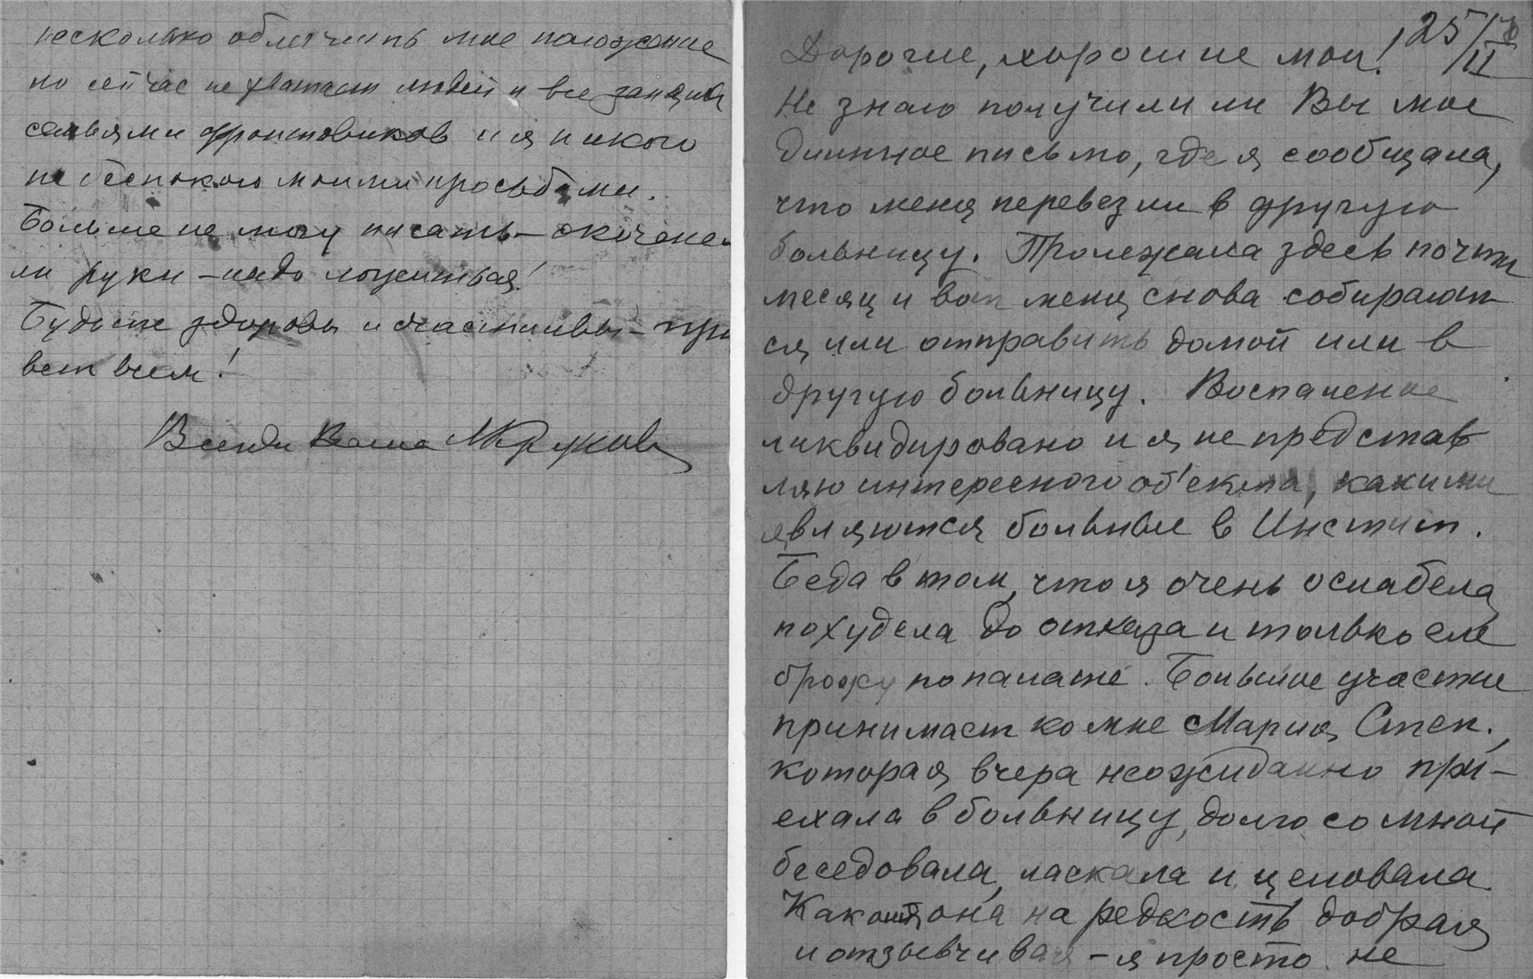 несколько облегчить мое положение
но сейчас не хватает людей и все заняты
семьями фронтовиков и я никого
не беспокою моими просьбами.
Больше не могу писать – окочене-
ли руки – надо ложиться!
Будьте здоровы и счастливы – при
вет всем!
Всегда Ваша
25/II
Дорогие, хорошие мои!
Не знаю получили ли Вы мое
длинное письмо, где я сообщала,
что меня перевезли в другую
больницу. Пролежала здесь почти
месяц и вот меня снова собирают
ся или отправить домой или в
другую больницу. Воспаление
ликвидировано и я не представ
ляю интересного об'екта, какими
являются больные в Инстит.
Беда в том, что я очень ослабела
похудела до отказа и только еле
брожу по палате. Большое участие
принимает ко мне Мария Степ.,
которая вчера неожиданно при-
ехала в больницу, долго со мной
беседовала, ласкала и целовала
Какая она на редкость добрая
и отзывчивая – я просто не